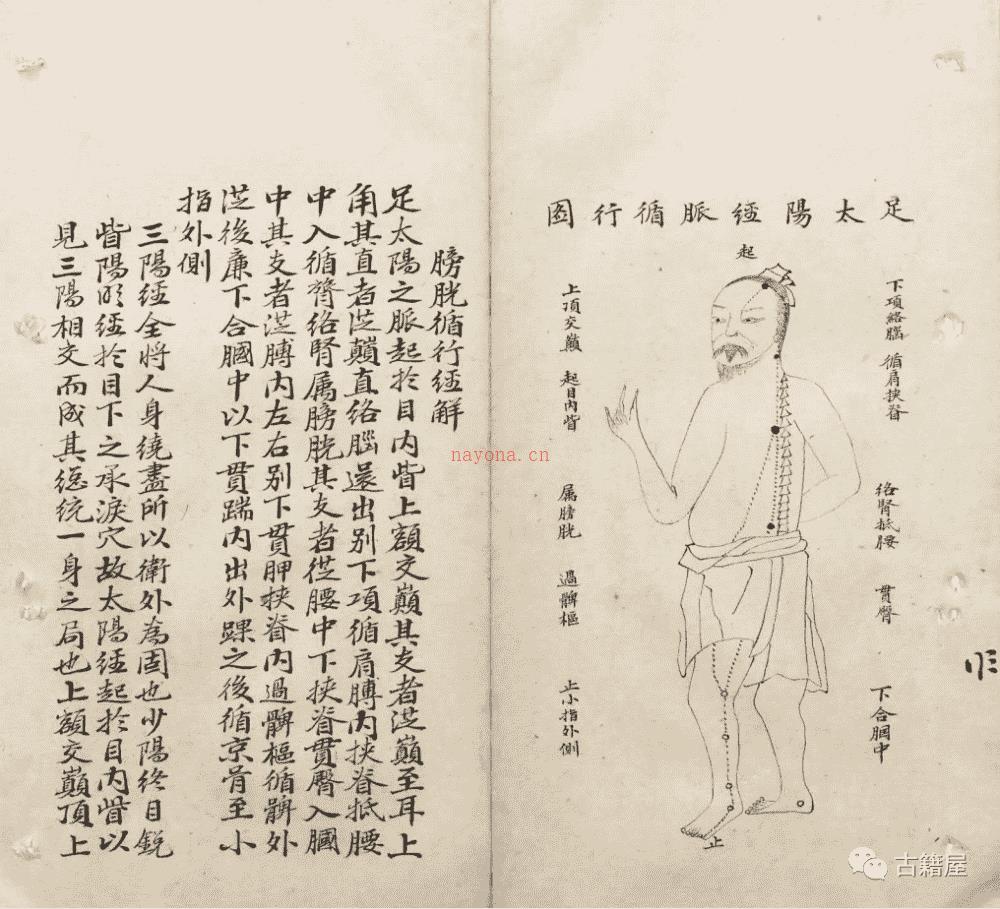 足太陽經脈循行图
起
下項絡腦
循肩挾脊
絡腎抵腰
貫臀
下合膕中
上頂交巔
起目內眥
属膀胱
過髀樞
止小指外側
止
膀胱循行經解
足太陽之脈起於目內眥上額交巔其支者從巔至耳上
角其直者從巔直絡腦還出別下項循肩膊內挾脊抵腰
中入循膂絡腎属膀胱其支者從腰中下挾脊貫臀入膕
中其支者從膊內左右別下貫胛挾脊內過髀樞循髀外
從後廉下合膕中以下貫踹內出外踝之後循京骨至小
指外側
三陽經全將人身繞盡所以衛外為固也少陽終目銳
眥陽明經於目下之承淚穴故太陽經起於目內眥以
見三陽相交而成其總統一身之局也上額交巔頂上
nayona.cn
古籍屋